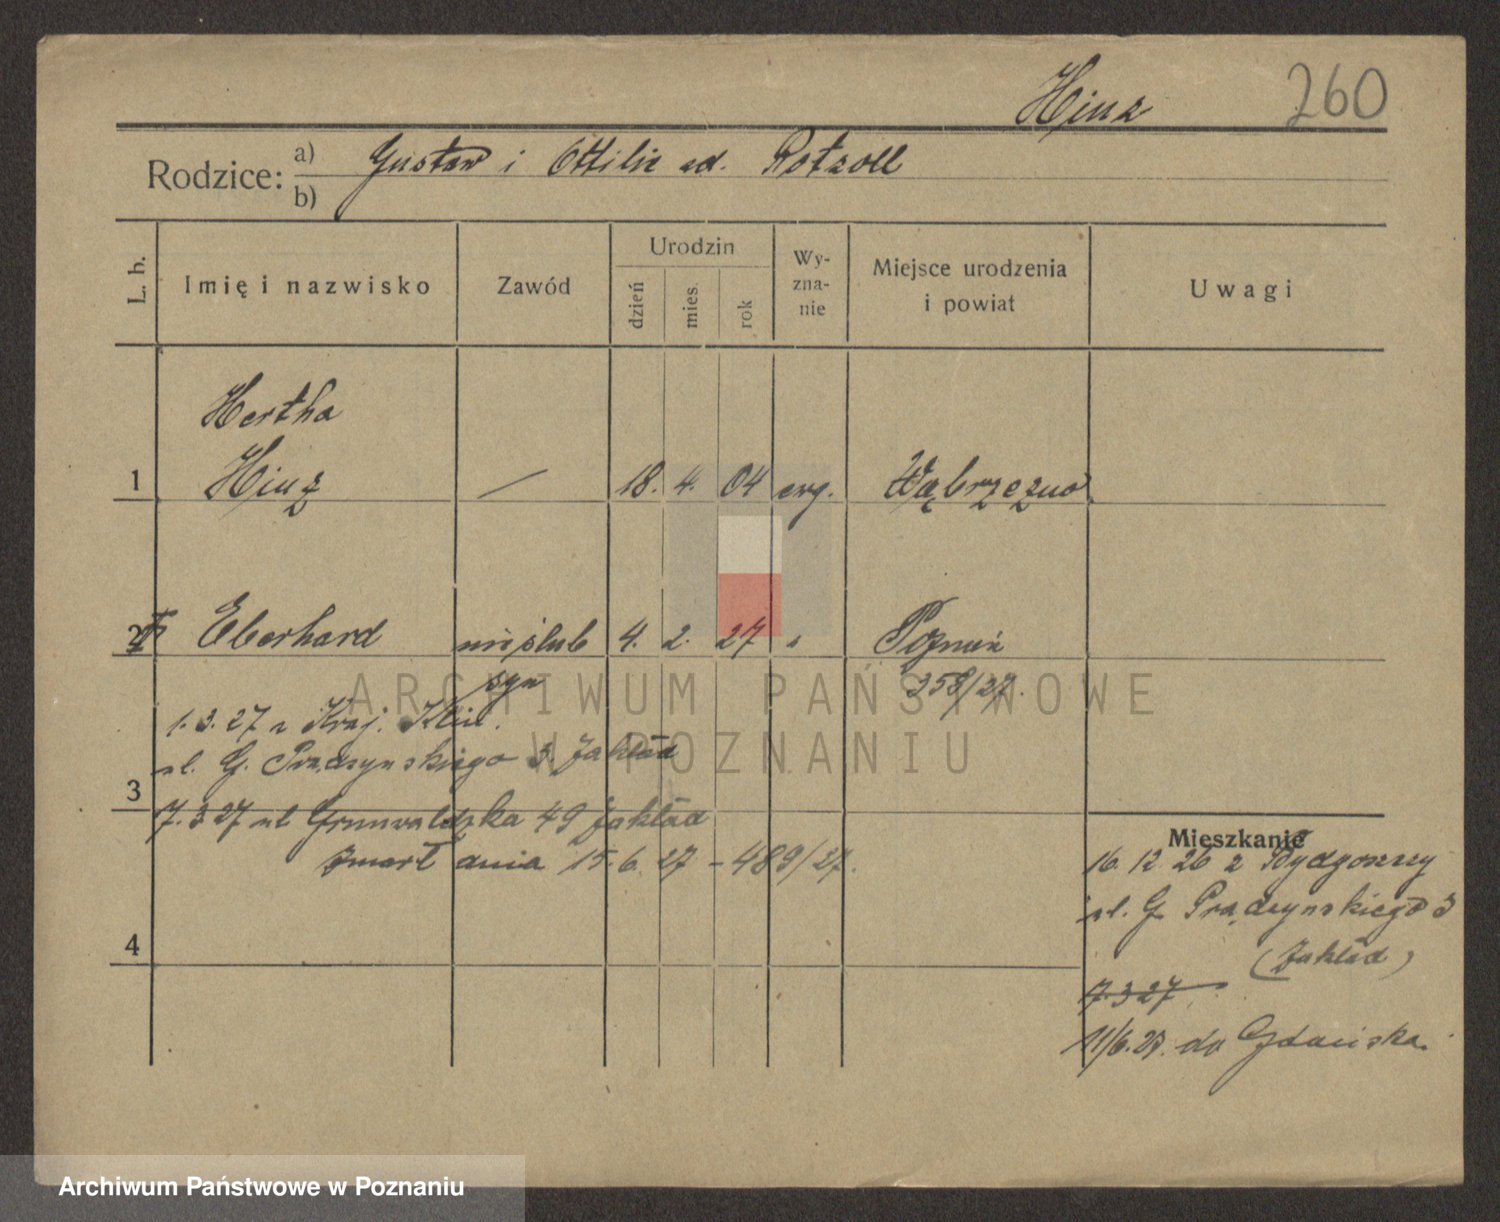 Hinz 260
Rodzice: a) Gustaw i Ottilie zd. Rotzoll
b)
L. b. Imię i nazwisko Zawód Urodzin dzień mies. rok Wy-zna-nie Miejsce urodzenia i powiat Uwagi
Hertha
1 Hinz — 18. 4. 04 ewg. Wąbrzeźno
2 Eberhard nieślub 4. 2. 27 " Poznań
syn 358/27.
ARCHIWUM PAŃSTWOWE
W POZNANIU
1. 3. 27 z Kraj. Klin.
ul. G. Prądzyńskiego 3. Zakład
3
7. 3 27 ul Grunwaldzka 49 Zakład
zmarł dnia 15. 6. 27 – 489/27.
4
Mieszkanie
16. 12 26 z Bydgoszczy
ul. G Prądzyńskiego 3
(Zakład)
7. 3 27
11/6. 27. do Gdańska.
Archiwum Państwowe w Poznaniu